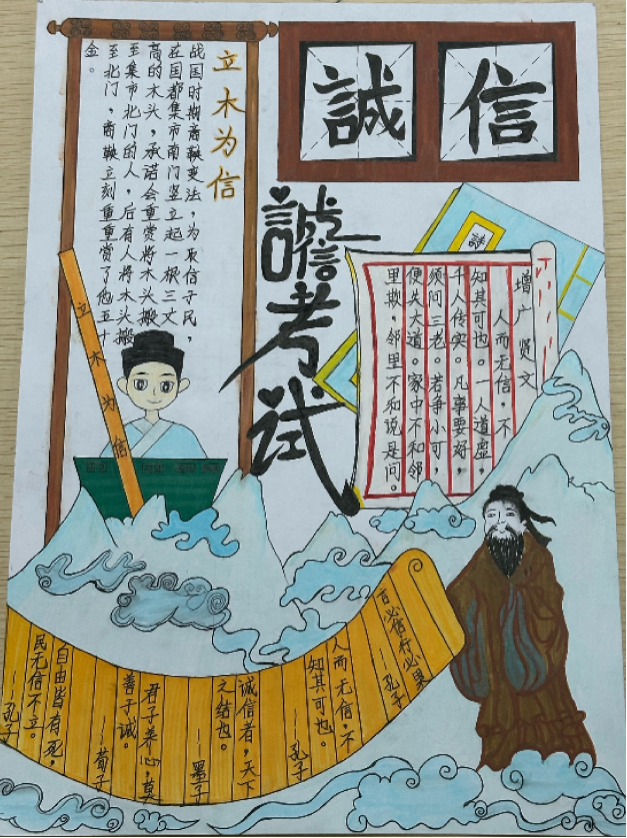 誠信
立木为信
战国时期商鞅变法，为取信于民，
在国都集市南门竖立起一根三丈
高的木头，承诺会重赏将木头搬
至集市北门的人，后有人将木头搬
至北门，商鞅立刻重重赏了他五十
金。
誠信考试
立木为信
增广贤文
人而无信，不
知其可也。一人道虚，
千人传实。凡事要好，
须问三老。若争小可，
便失大道。家中不和邻
里欺，邻里不和说是问。
言必信行必果
——孔子
人而无信，不
知其可也。
——孔子
诚信者，天下
之结也。
——墨子
君子养心，莫
善于诚。
——荀子
自由皆有死，
民无信不立。
——孔子